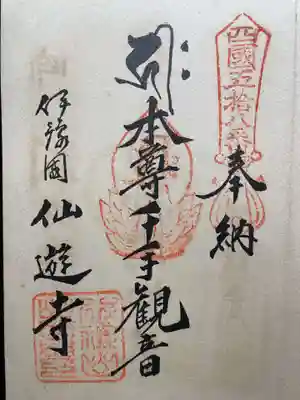 四國五拾八番
奉納
本尊千手観音
伊豫國
仙遊寺